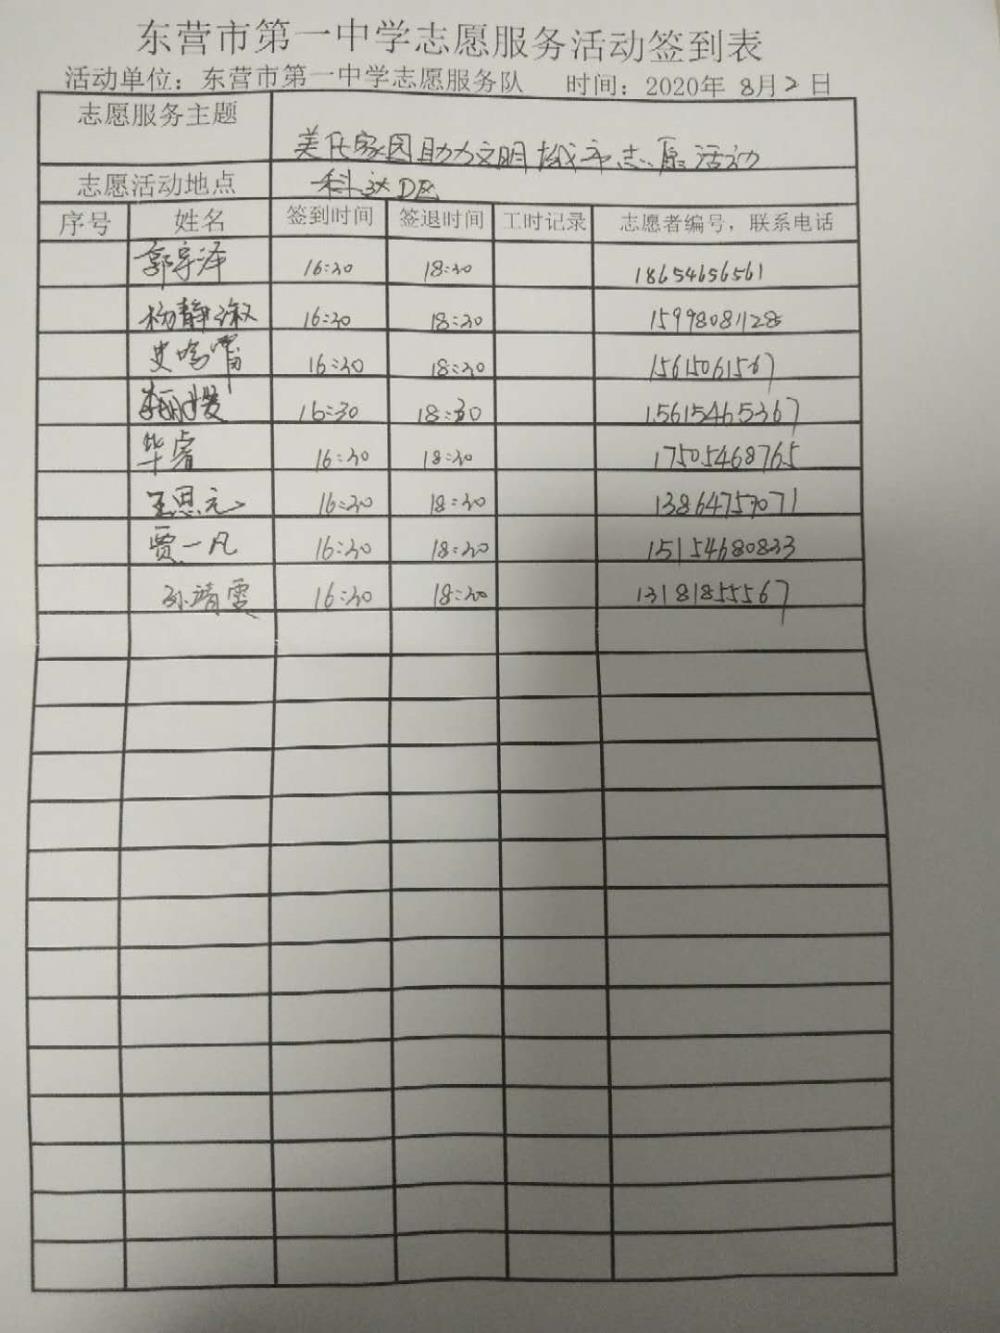 东营市第一中学志愿服务活动签到表
活动单位：东营市第一中学志愿服务队 时间：2020年 8月2日
志愿服务主题 美化家园助力文明城市志愿活动
志愿活动地点 科达D区
序号 姓名 签到时间 签退时间 工时记录 志愿者编号，联系电话
郭宇泽 16:30 18:30 18654656561
杨静淑 16:30 18:30 15998081128
史鸣霄 16:30 18:30 15615061567
16:30 18:30 15615465367
华睿 16:30 18:30 17505468765
王思元 16:30 18:30
贾一凡 16:30 18:30 15154680833
孙靖雯 16:30 18:30 13181855567